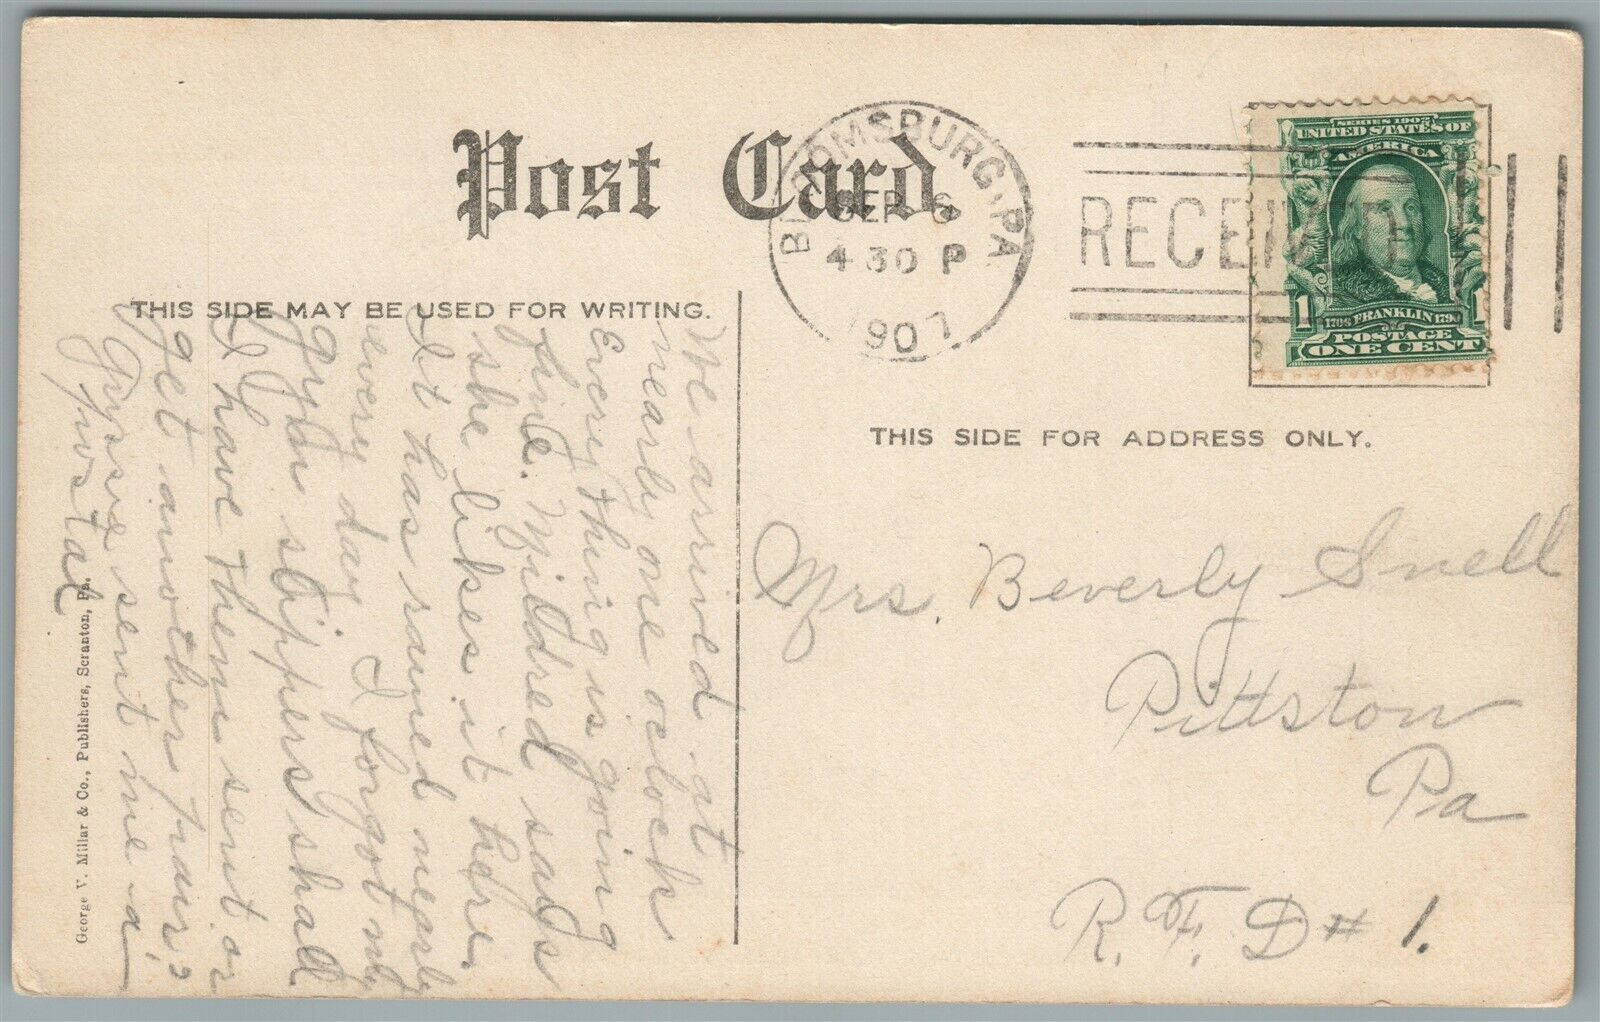 Post Card.
BLOOMSBURG, PA
SEP 6
4 30 P
1907
RECEIVED
SERIES 1902
UNITED STATES OF
AMERICA
1706 FRANKLIN 1790
1 POSTAGE 1
ONE CENT
THIS SIDE MAY BE USED FOR WRITING.
THIS SIDE FOR ADDRESS ONLY.
We arrived at
nearly one oclock
Every thing is going
fine. Mildred says
she likes it here.
It has rained nearly
every day. I forgot my
gym slippers shall
I have them sent or
get another pair?
Guysve sent me a
postal
Mrs. Beverly Snell
Pittston
Pa
R. F. D # 1.
George V. Millar & Co., Publishers, Scranton, Pa.